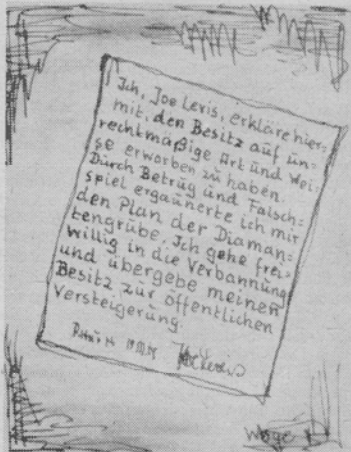 Ich, Joe Leris, erkläre hier=
mit, den Besitz auf un=
rechtmäßige Art und Wei=
se erworben zu haben.
Durch Betrug und Falsch=
spiel ergaunerte ich mir
den Plan der Diaman=
tengrube. Ich gehe frei=
willig in die Verbannung
und übergebe meinen
Besitz zur öffentlichen
Versteigerung.
Joe Leris
Woge